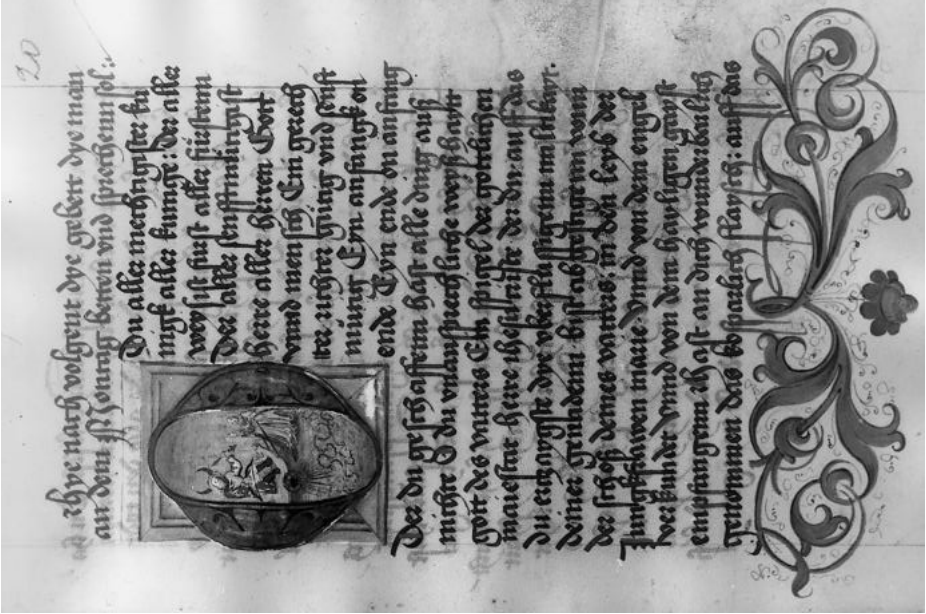 20
Hye nach volgent dye gebett dye man
an dem Montag betten vnd sprechenn sol:
Du aller mechtigster ku
nigk aller kunnige: der aller
weysist furst aller fürstenn
Der aller senfftmutigist
herre aller herren Gott
vnnd mensch Ein gerech
tte richter gutig vnd senft
mütig Eyn anfangk on
ende Eyn ende on anfang
Der du geschaffenn hast alle ding auß
nichte O du vnaußsprechliche weyßhaitt
gott des vatters Ein spigel der gottlichen
maiestat herre der du auff das
du ertzaygst die vberflussigenn miltikayt
deiner bist abgestigenn vonn
der schoß deines vatters in den leyb der
Junngkfrawen marie vnnd von dem engel
verkundet vnnd von dem hayligen gayst
empfangenn hast an dich wunderbarlich
genommen das kostparlich flaysch: auff das